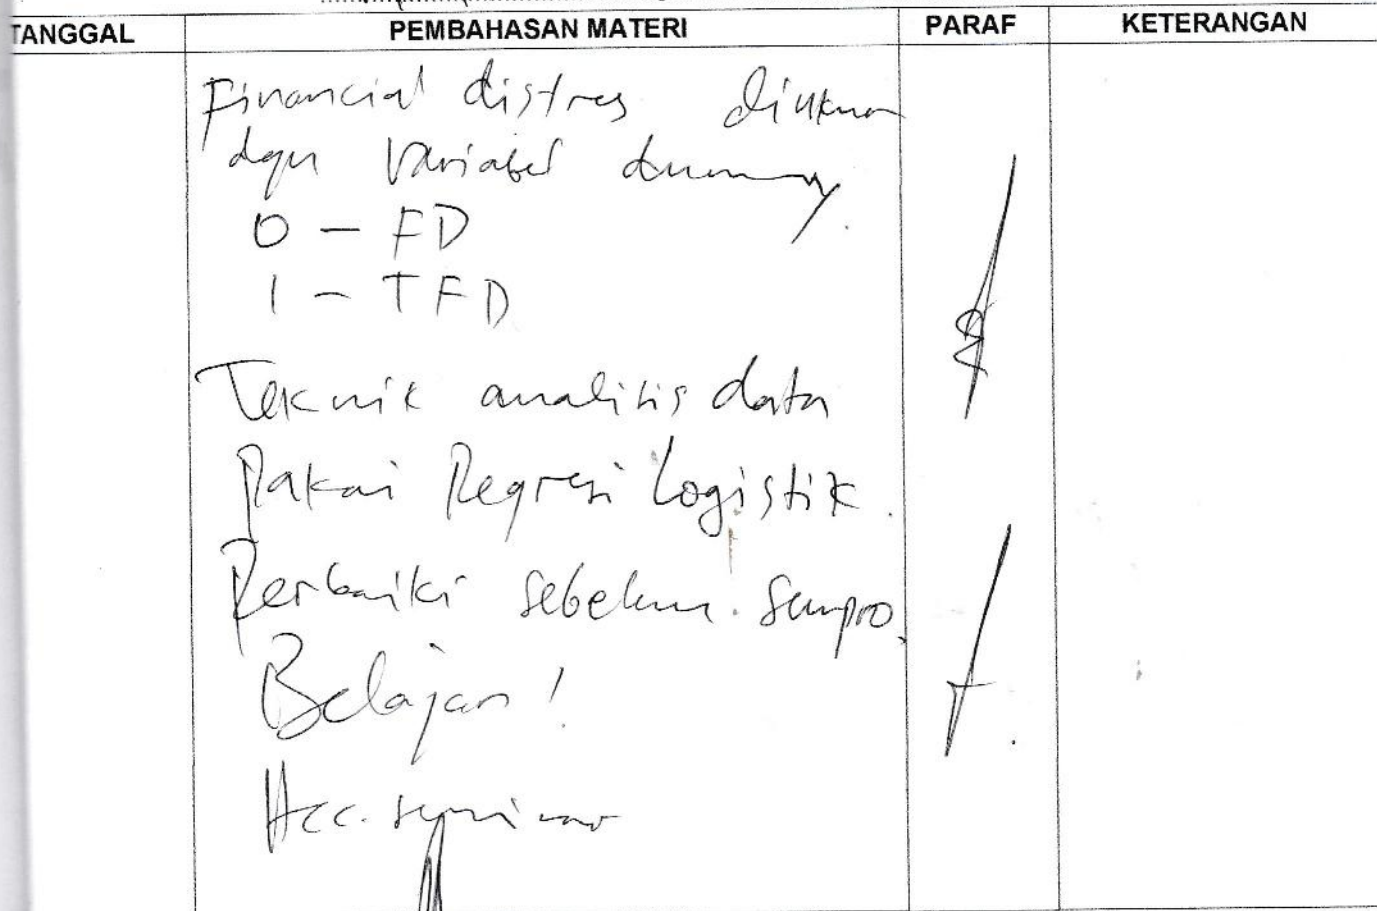 TANGGAL PEMBAHASAN MATERI PARAF KETERANGAN
Financial distres diukur
dgn Variabel dummy.
0 - FD
1 - TFD
Teknik analisis data
Pakai Regresi Logistik.
Perbaiki sebelum sempro.
Belajar!
Acc. seminar